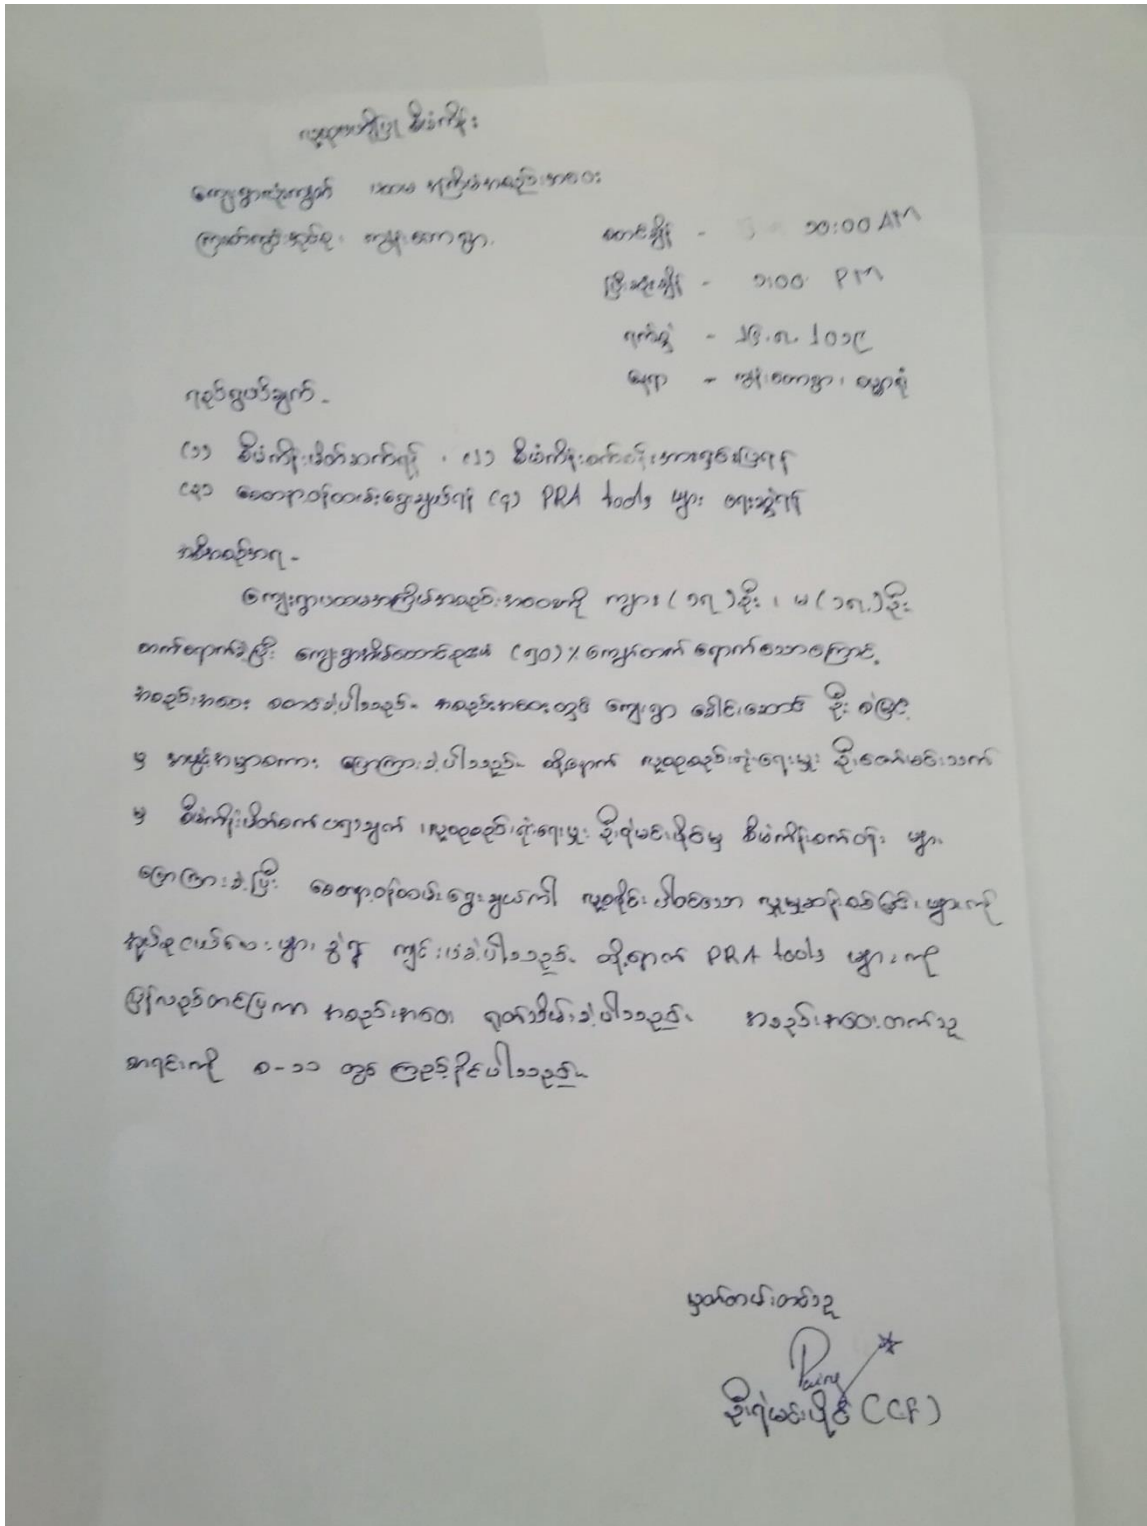 လူထုဗဟိုပြု စီမံကိန်း
ကျေးရွာလုံးကျွတ် ပထမ အကြိမ်အစည်းအဝေး
ကျွန်းတောရွာ စတင်ချိန် - ၁၀:00 AM
ပြီးဆုံးချိန် - ၁:00 PM
ရက်စွဲ - ၂၆.၈.၂၀၁၉
နေရာ - ကျွန်းတောရွာ၊ ဓမ္မာရုံ
ရည်ရွယ်ချက် -
(၁) စီမံကိန်းမိတ်ဆက်ရန် ၊ (၂) စီမံကိန်းစက်ဝန်းအားရှင်းပြရန်
(၃) စေတနာ့ဝန်ထမ်းရွေးချယ်ရန် (၄) PRA tools များ ရေးဆွဲရန်
အစီအစဉ်အရ -
ကျေးရွာပထမအကြိမ်အစည်းအဝေးကို ကျား ( ၁၇ ) ဦး ၊ မ ( ၁၈ ) ဦး
တက်ရောက်ခဲ့ပြီး ကျေးရွာအိမ်ထောင်စု၏ (၅၀) % ကျော်တက် ရောက်သောကြောင့်
အစည်းအဝေး စတင်ခဲ့ပါသည်။ အစည်းအဝေးတွင် ကျေးရွာ ခေါင်းဆောင် ဦး စံမြင့်
မှ အဖွင့်အမှာစကား ပြောကြားခဲ့ပါသည်။ ထို့နောက် လူထုစည်းရုံးရေးမှူး ဦးဇော်မင်းသက်
မှ စီမံကိန်းမိတ်ဆက် ၊ လူထုစည်းရုံးရေးမှူး ဦးရဲမင်းပိုင်မှ စီမံကိန်းစက်ဝန်း များ
ပြောကြားခဲ့ပြီး စေတနာ့ဝန်ထမ်းရွေးချယ်ကာ လူထုပိုင်းပါဝင်သော လူမှုဆန်းစစ်ခြင်း များကို
အုပ်စုငယ်လေးများ ခွဲ၍ ကျင်းပခဲ့ပါသည်။ ထို့နောက် PRA tools များကို
ပြန်လည်တင်ပြကာ အစည်းအဝေး ရုတ်သိမ်းခဲ့ပါသည်။ အစည်းအဝေးတက်သူ
စာရင်းကို စ-၁၁ တွင် ကြည့်နိုင်ပါသည်။
မှတ်တမ်းတင်သူ
Paing
ဦးရဲမင်းပိုင် (CF)